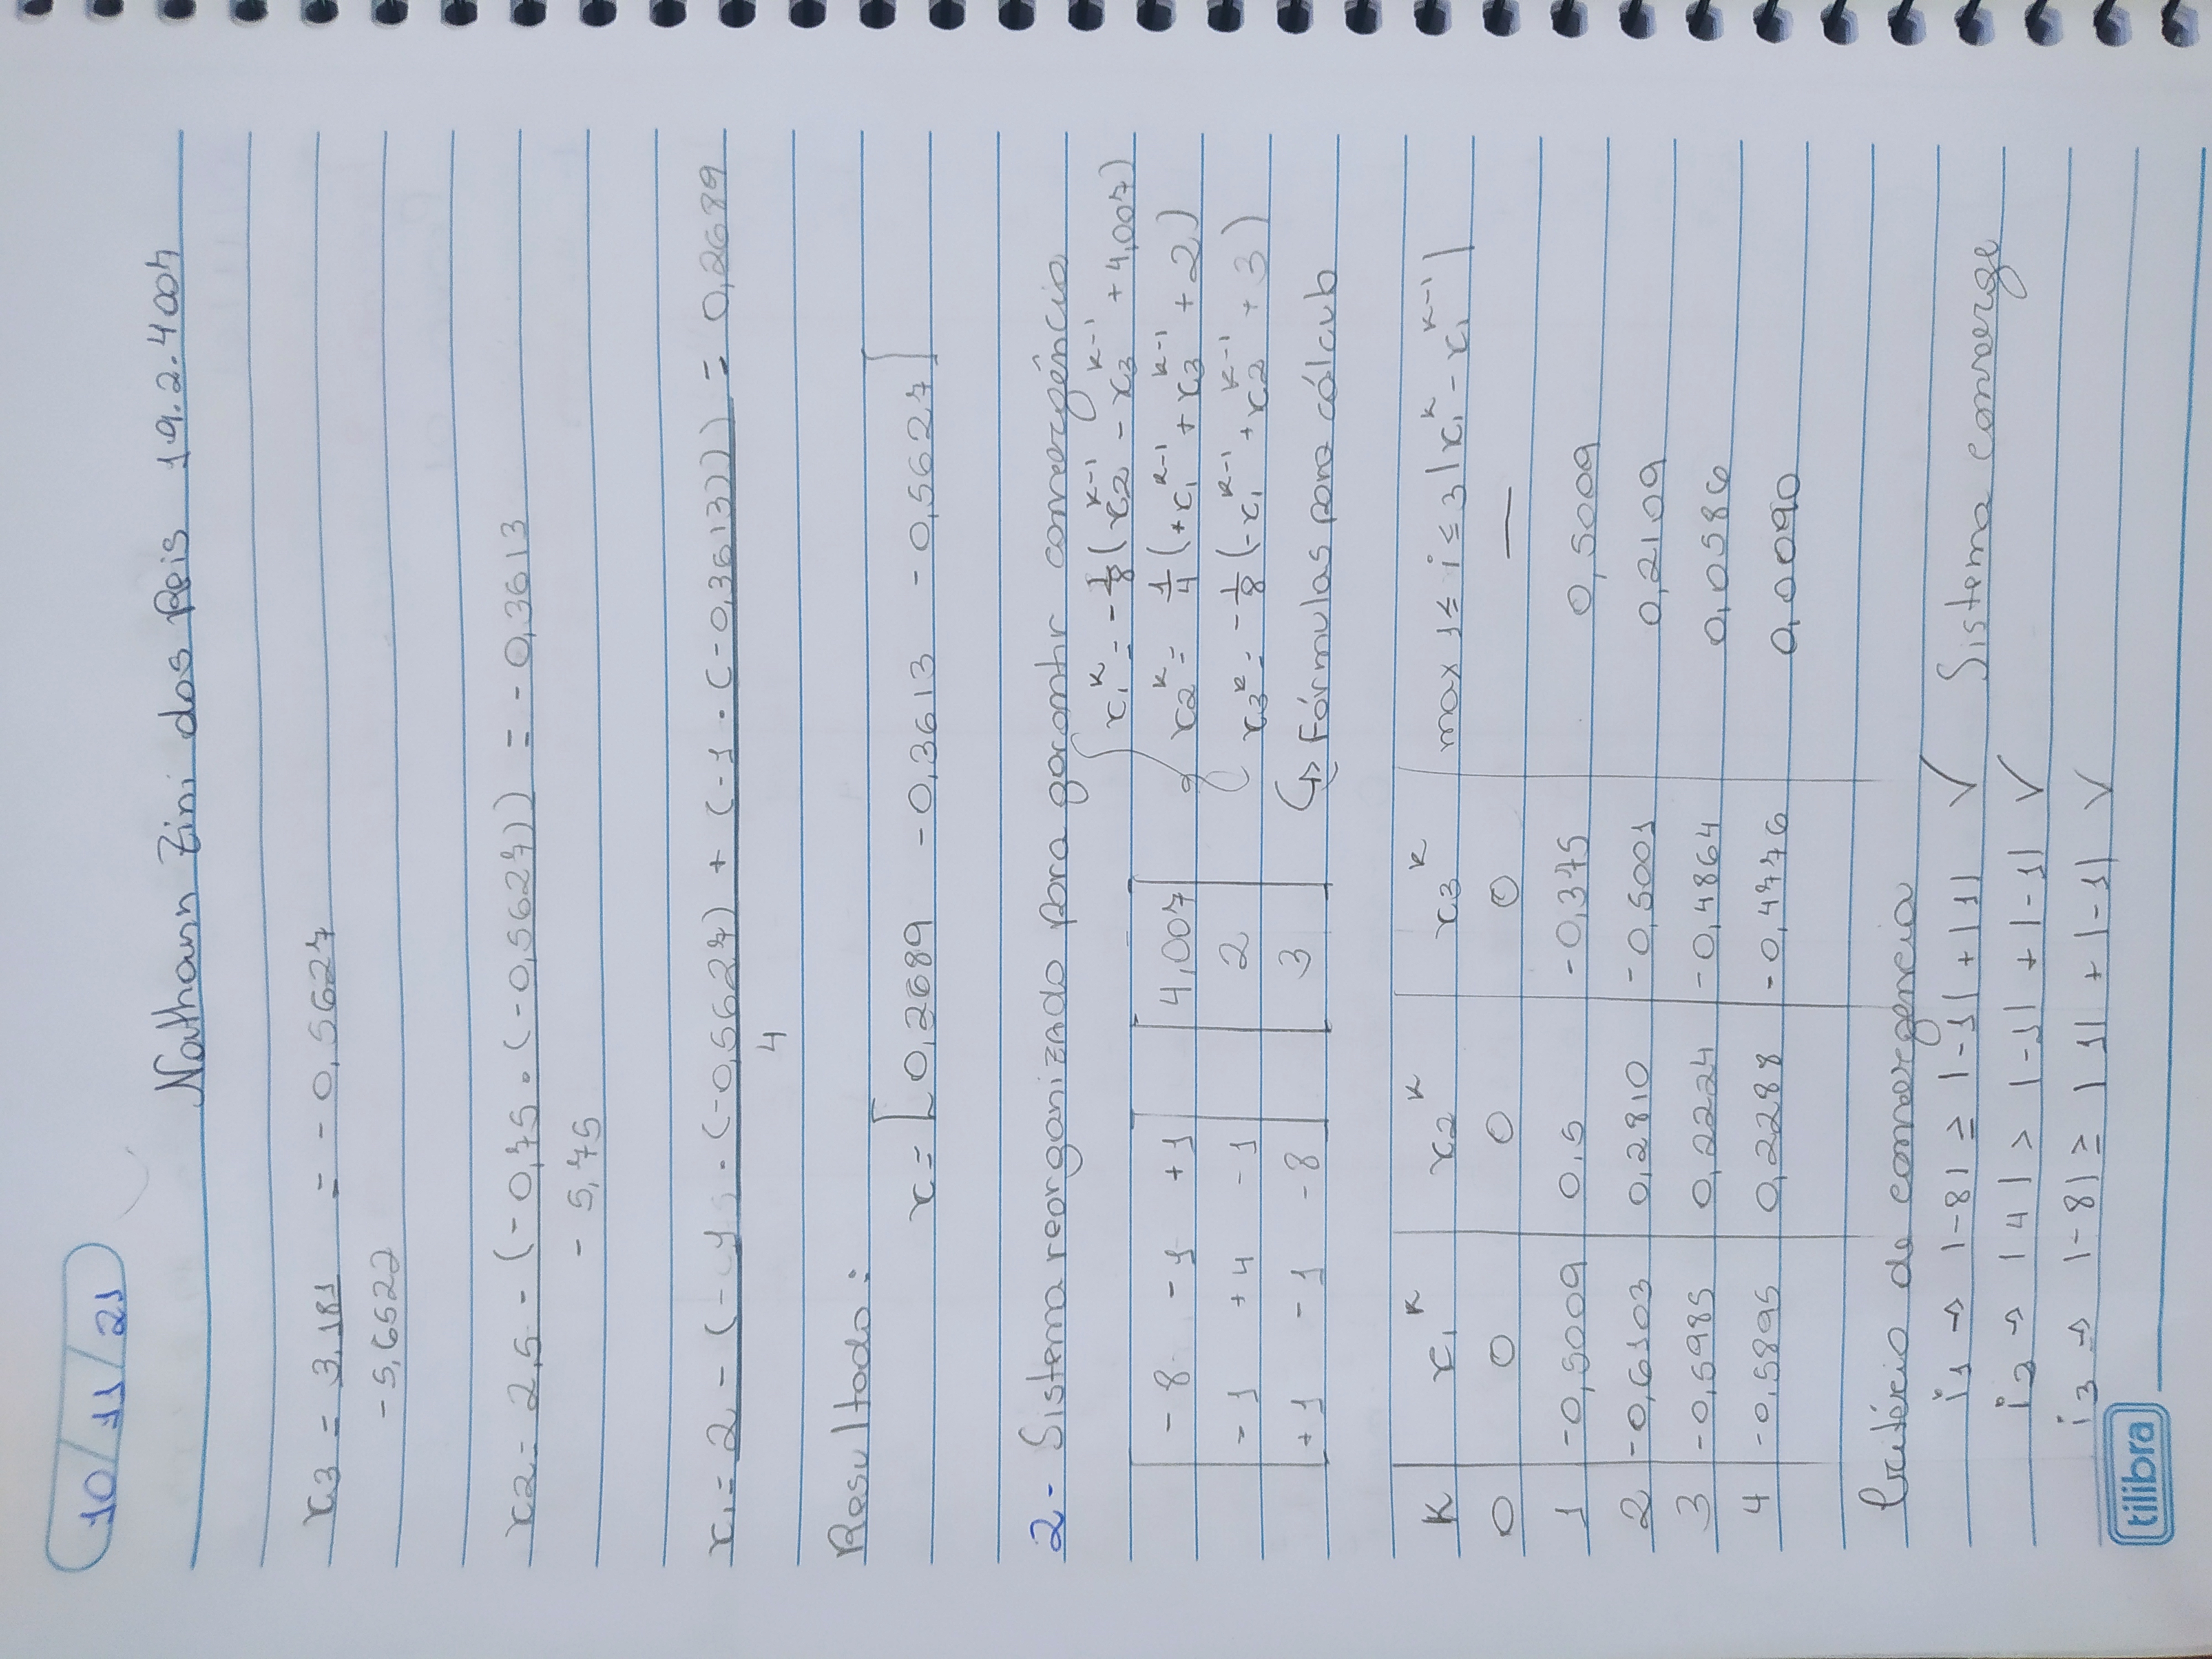 10/11/21
Nathann Zini dos Reis 19.2.4007
x3 = 3,181 = -0,5627
-5,6522
x2 = 2,5 - (-0,75 . (-0,5627)) = -0,3613
-5,75
x1 = 2 - (-1 . (-0,5627) + (-1 . (-0,3613))) = 0,2689
4
Resultado:
x = [0,2689 -0,3613 -0,5627]
2- Sistema reorganizado para garantir convergência
x1^k = -1/8 (x2^k-1 - x3^k-1 + 4,007)
-8 -1 +1 4,007 x2^k = 1/4 (+x1^k-1 + x3^k-1 + 2)
-1 +4 -1 2 x3^k = -1/8 (-x1^k-1 + x2^k-1 + 3)
+1 -1 -8 3 ↳ Fórmulas para cálculo
K x1^k x2^k x3^k max 1≤i≤3 |xi^k - xi^k-1|
0 0 0 0 —
1 -0,5009 0,5 -0,375 0,5009
2 -0,6103 0,2810 -0,5001 0,2109
3 -0,5985 0,2224 -0,4864 0,0586
4 -0,5895 0,2288 -0,4776 0,0090
Critério de convergencia
i1 → |-8| ≥ |-1| + |1| ✓ Sistema converge
i2 → |4| > |-1| + |-1| ✓
i3 → |-8| ≥ |1| + |-1| ✓
tilibra